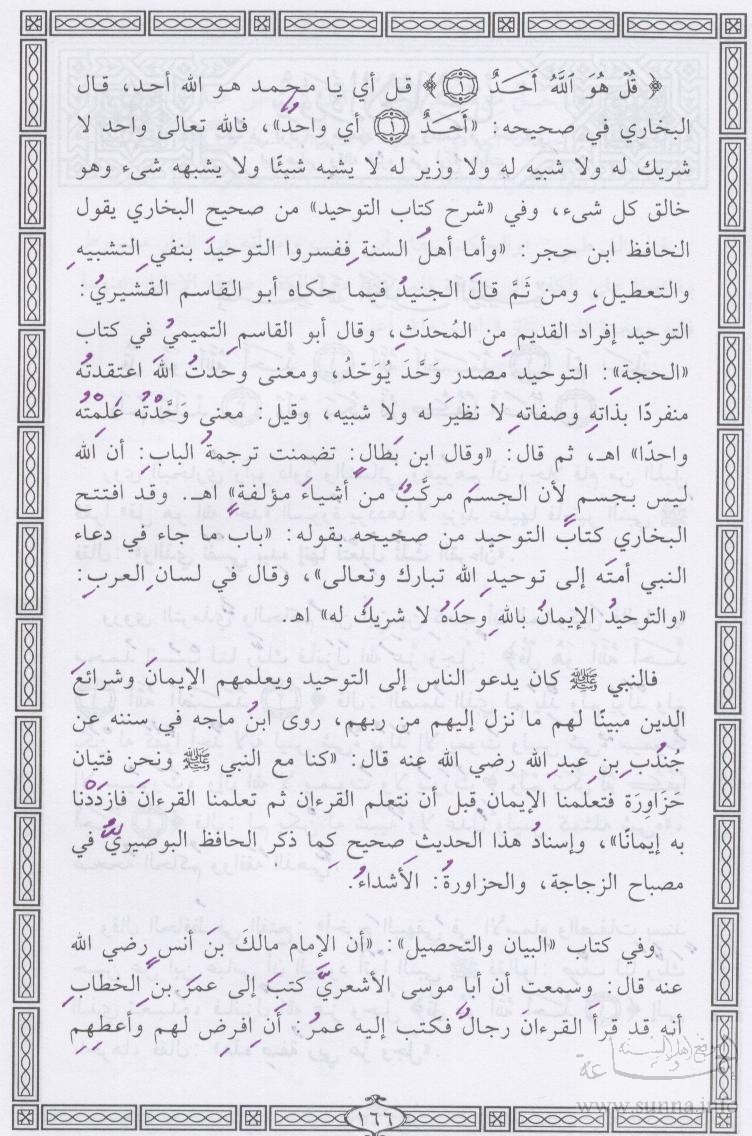 ﴿ قُلْ هُوَ ٱللَّهُ أَحَدٌ ۝١ ﴾ قل أي يا محمد هو الله أحد، قال
البخاري في صحيحه: «أَحَدٌ ۝١ أي واحدٌ»، فالله تعالى واحد لا
شريك له ولا شبيه له ولا وزير له لا يشبه شيئًا ولا يشبهه شىء وهو
خالق كل شىء، وفي «شرح كتاب التوحيد» من صحيح البخاري يقول
الحافظ ابن حجر: «وأما أهلُ السنة ففسروا التوحيدَ بنفي التشبيهِ
والتعطيلِ، ومن ثَمَّ قالَ الجنيدُ فيما حكاه أبو القاسم القشيريُ:
التوحيد إفراد القديم من المُحدَثِ، وقال أبو القاسم التميميُ في كتاب
«الحجة»: التوحيد مصدر وَحَّدَ يُوَحّدُ، ومعنى وحدتُ اللهَ اعتقدتُه
منفردًا بذاتهِ وصفاتهِ لا نظير له ولا شبيه، وقيل: معنى وَحَّدْتُه عَلِمْتُه
واحدًا» اهـ، ثم قال: «وقال ابن بَطالٍ: تضمنت ترجمةُ البابِ: أن الله
ليس بجسمٍ لأن الجسمَ مركَّبٌ من أشياءَ مؤلفةٍ» اهـ. وقد افتتح
البخاري كتابَ التوحيد من صحيحه بقوله: «باب ما جاء في دعاء
النبي أمتَه إلى توحيدِ اللهِ تبارك وتعالى»، وقال في لسانِ العربِ:
«والتوحيدُ الإيمانُ باللهِ وحدَهُ لا شريكَ له» اهـ.
فالنبي ﷺ كان يدعو الناس إلى التوحيد ويعلمهم الإيمانَ وشرائعَ
الدين مبينًا لهم ما نزل إليهم من ربهم، روى ابنُ ماجه في سننه عن
جُنْدُبِ بنِ عبدِ الله رضي الله عنه قال: «كنا مع النبي ﷺ ونحن فتيان
حَزَاوِرَة فتعلمنا الإيمان قبل أن نتعلم القرءان ثم تعلمنا القرءانَ فازدَدْنا
به إيمانًا»، وإسنادُ هذا الحديث صحيح كما ذكر الحافظ البوصيريُّ في
مصباح الزجاجة، والحزاورةُ: الأشداءُ.
وفي كتاب «البيان والتحصيل»: «أن الإمام مالكَ بنَ أنسٍ رضي الله
عنه قال: وسمعت أن أبا موسى الأشعريَّ كتبَ إلى عمرَ بنِ الخطابِ
أنه قد قرأ القرءانَ رجالٌ فكتب إليه عمرُ: أنِ افرِض لهم وأعطِهِم
موقع أهل السنة
www.sunna.info
١٦٦